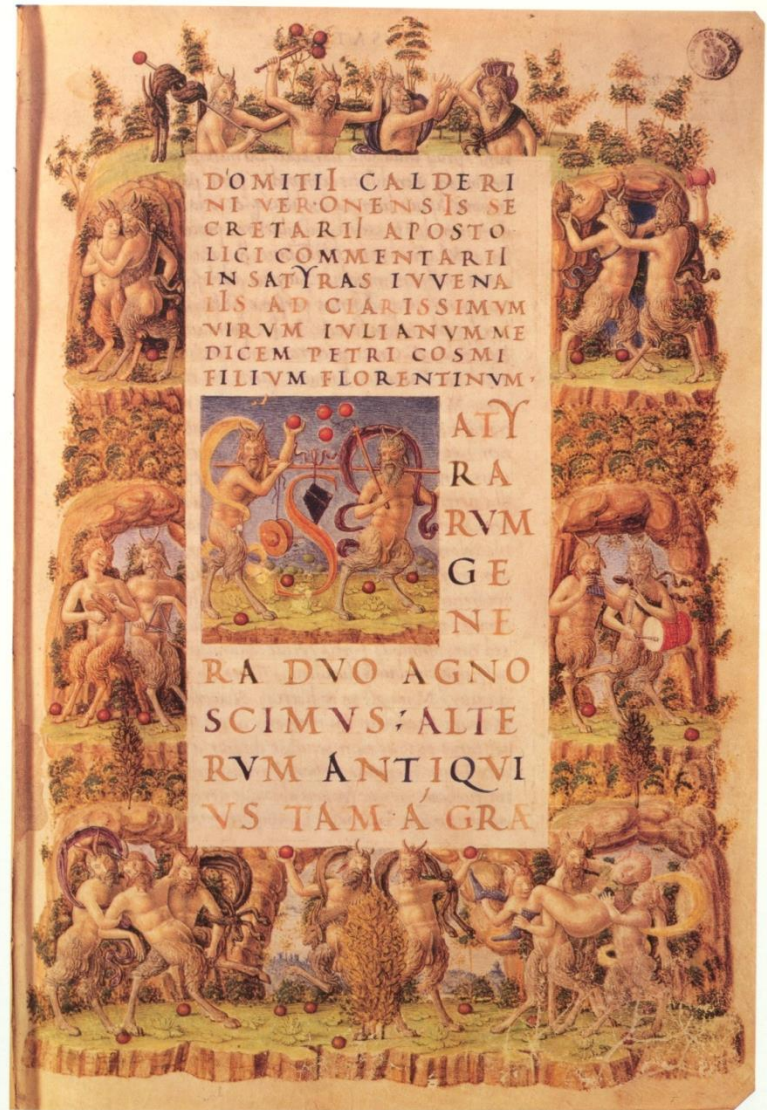 DOMITII CALDERI
NI VERONENSIS SE
CRETARII APOSTO
LICI COMMENTARII
IN SATYRAS IVVENA
LIS AD CLARISSIMVM
VIRVM IVLIANVM ME
DICEM PETRI COSMI
FILIVM FLORENTINVM·
S
ATY
RA
RVM
GE
NE
RA DVO AGNO
SCIMVS: ALTE
RVM ANTIQVI
VS TAM Á GRÆ